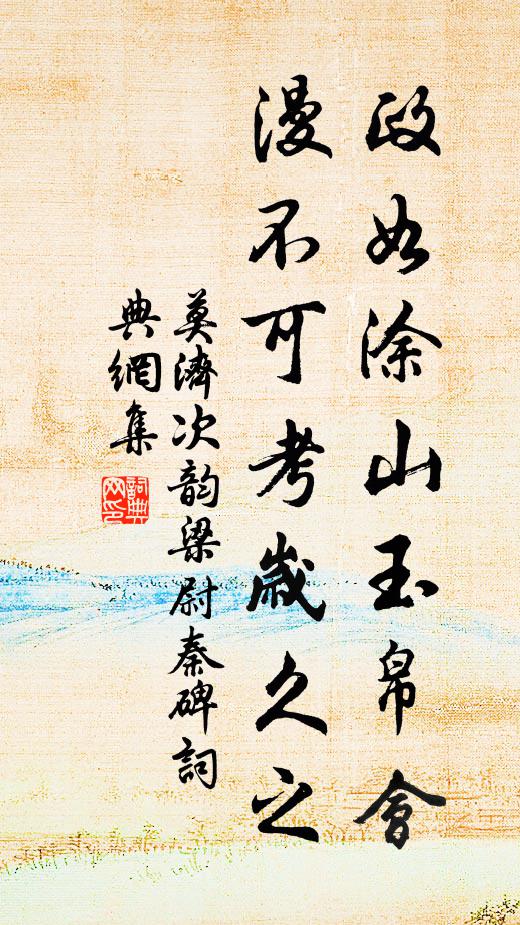 政如涂山玉帛會
漫不可考歲久之
莫濟次韵梁尉秦碑詞
典網集
詞典網印